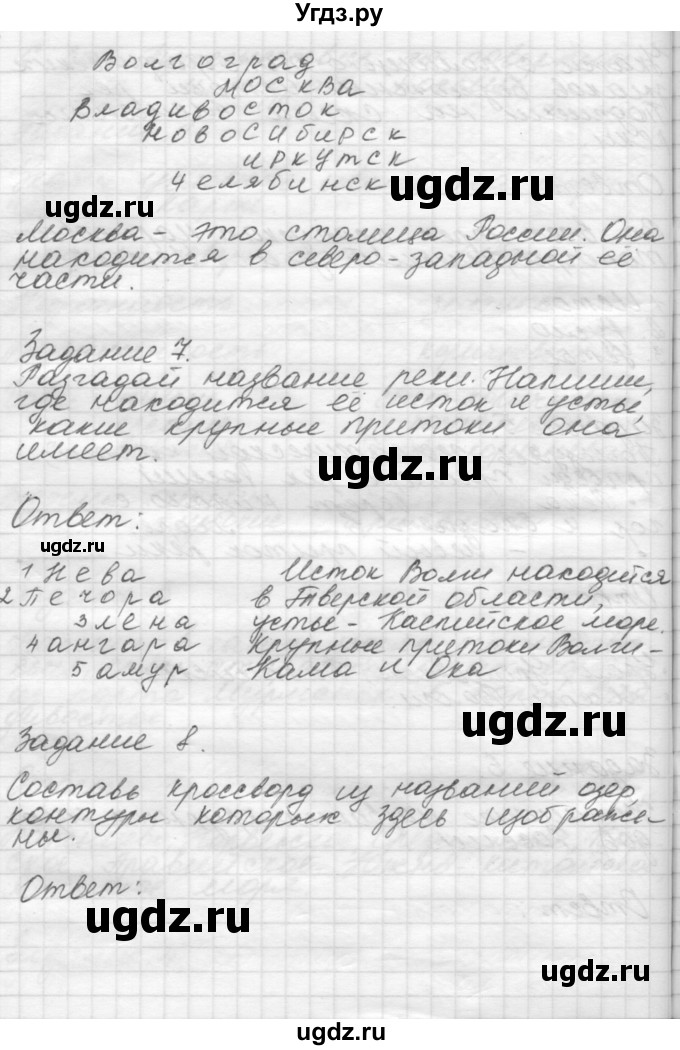 Угдз.ру
Волгоград
москва
Владивосток
новосибирск
иркутск
Челябинск
ugdz.ru
ugdz.ru
Москва - это столица России. Она
находится в северо-западной её
части.
Задание 7.
Разгадай название реки. Напиши,
где находится её исток и устье,
какие крупные притоки она
имеет.
ugdz.ru
Ответ:
ugdz.ru
1 Нева Исток Волги находится
2 Печора в Тверской области,
3 лена устье - Каспийское море.
4 ангара крупные притоки Волги-
5 амур Кама и Ока
ugdz.ru
Задание 8.
Составь кроссворд из названий озер,
контуры которых здесь изображе-
ны.
Ответ:
ugdz.ru
ugdz.ru
ugdz.ru